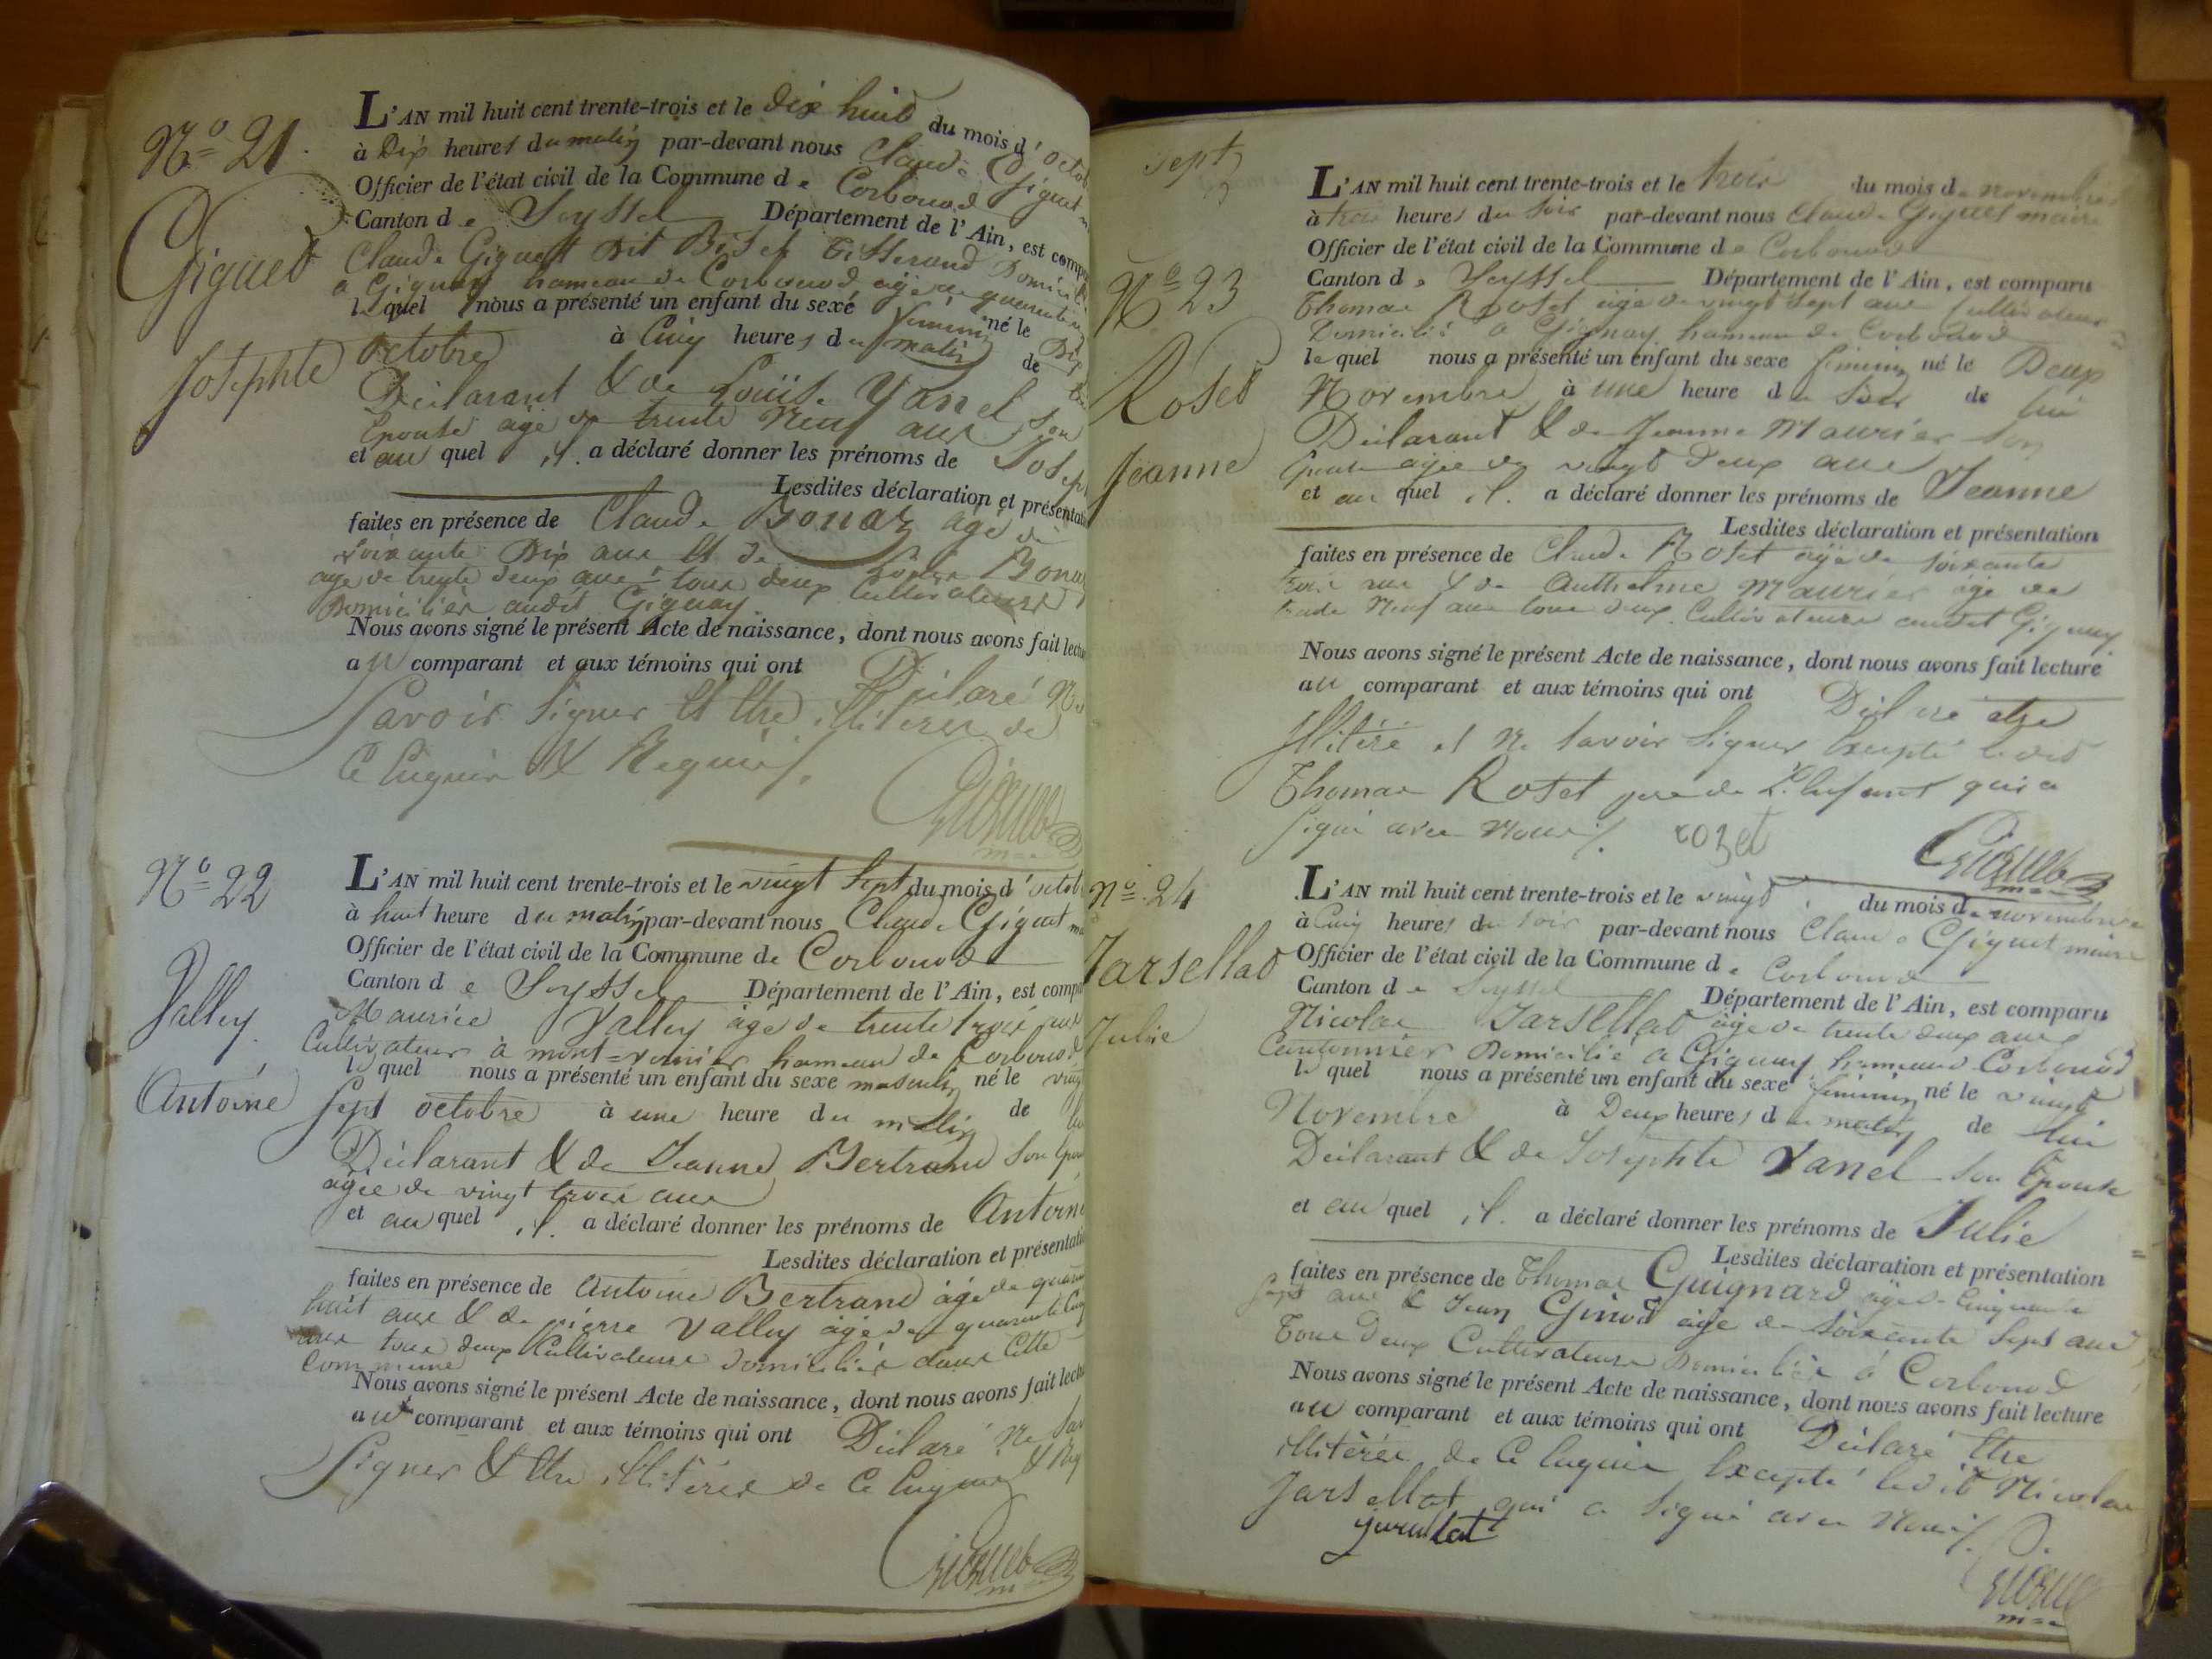 N.º 21.
Giguet
Josephte
L'AN mil huit cent trente-trois et le dix huit du mois d'octob
à Dix heures du matin par-devant nous Claude Giguet
Officier de l'état civil de la Commune de Corbonod
Canton de Seyssel Département de l'Ain, est comp
Claude Giguet dit Tisserand Domicil
a Gignay hameau de Corbonod agé de quarante
lequel nous a présenté un enfant du sexe feminin né le Dix
octobre à Cinq heures du matin de
Déclarant & de Louise Yanel Son
Epouse agé de trente Neuf ans
et au quel il a déclaré donner les prénoms de Josep
Lesdites déclaration et présentati
faites en présence de Claude Bonaz agé de
soixante Dix ans Et de Bona
age de trente deux ans tous deux Cultivateurs
Domiciliés audit Gignay
Nous avons signé le présent Acte de naissance, dont nous avons fait lectu
au comparant et aux témoins qui ont Déclaré Ne
Savoir Signer Et Etre illiteres de
Ce Enquis & Requis
Giguet
N.º 22
Valley
Antoine
L'AN mil huit cent trente-trois et le vingt Sept du mois d'octob
à huit heure du matin par-devant nous Claude Giguet m
Officier de l'état civil de la Commune de Corbonod
Canton de Seyssel Département de l'Ain, est comp
Maurice Valley âgé de trente trois ans
Cultivateur à mont=vernier hameau de Corbonod
lequel nous a présenté un enfant du sexe masculin né le ving
Sept octobre à une heure du matin de lui
Déclarant & de Jeanne Bertrand Son Epou
agée de vingt trois ans
et au quel il a déclaré donner les prénoms de Antoine
Lesdites déclaration et présentati
faites en présence de Antoine Bertrand âgé de quaran
huit ans & de pierre Valley âgé de quarante Cinq
ans tous deux Cultivateurs domiciliés dans Cette
Commune
Nous avons signé le présent Acte de naissance, dont nous avons fait lectu
au comparant et aux témoins qui ont Déclaré Ne Sav
Signer & Etre illitérés de Ce Enquis & Req
Giguet
Sept
N.º 23
Roset
Jeanne
L'AN mil huit cent trente-trois et le trois du mois de novembre
à trois heures du Soir par-devant nous Claude Giguet maire
Officier de l'état civil de la Commune de Corbonod
Canton de Seyssel Département de l'Ain, est comparu
Thomas Roset agé de vingt Sept ans Cultivateur
Domicilié a Gignay hameau de Corbonod
lequel nous a présenté un enfant du sexe feminin né le Deux
Novembre à une heure du Soir de lui
Déclarant & de Jeanne Maurier Son
Epouse agée de vingt Deux ans
et au quel il a déclaré donner les prénoms de Jeanne
Lesdites déclaration et présentation
faites en présence de Claude Roset agé de soixante
trois ans & de Anthelme Maurier agé de
trente Neuf ans tous deux Cultivateurs audit Gignay
Nous avons signé le présent Acte de naissance, dont nous avons fait lecture
au comparant et aux témoins qui ont Déclaré etre
Illitéré et Ne Savoir Signer Excepté ledit
Thomas Roset pere de L'Enfant qui a
Signé avec Nous
rozet
Giguet
N.º 24
Jarsellat
Julie
L'AN mil huit cent trente-trois et le vingt du mois de novembre
à Cinq heures du Soir par-devant nous Claude Giguet maire
Officier de l'état civil de la Commune de Corbonod
Canton de Seyssel Département de l'Ain, est comparu
Nicolas Jarsellat âgé de trente deux ans
Cantonnier Domicilié a Gignay hameau Corbonod
lequel nous a présenté un enfant du sexe feminin né le vingt
Novembre à Deux heures du matin de lui
Déclarant & de Josephte Yanel Son Epouse
et au quel il a déclaré donner les prénoms de Julie
Lesdites déclaration et présentation
faites en présence de Thomas Guignard agé de Cinquante
Sept ans & Jean Ginod âgé de Soixante Sept ans
Tous Deux Cultivateurs Domiciliés à Corbonod
Nous avons signé le présent Acte de naissance, dont nous avons fait lecture
au comparant et aux témoins qui ont Déclaré Etre
illitérés de Ce Enquis Excepté ledit Nicolas
Jarsellat qui a Signé avec Nous
Giguet